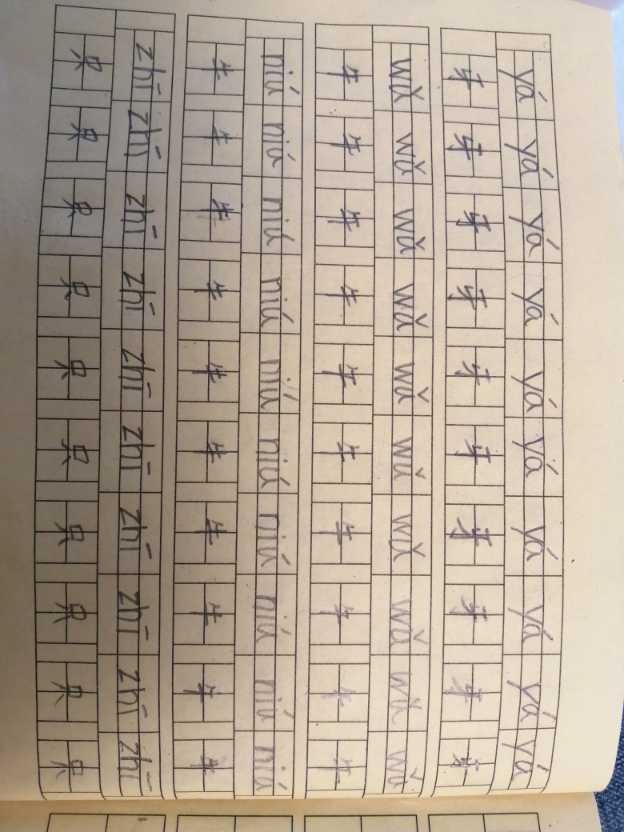 yá yá yá yá yá yá yá yá yá yá
牙 牙 牙 牙 牙 牙 牙 牙 牙 牙
wǔ wǔ wǔ wǔ wǔ wǔ wǔ wǔ wǔ wǔ
午 午 午 午 午 午 午 午 午 午
niú niú niú niú niú niú niú niú niú niú
牛 牛 牛 牛 牛 牛 牛 牛 牛 牛
zhī zhī zhī zhī zhī zhī zhī zhī zhī zhī
只 只 只 只 只 只 只 只 只 只